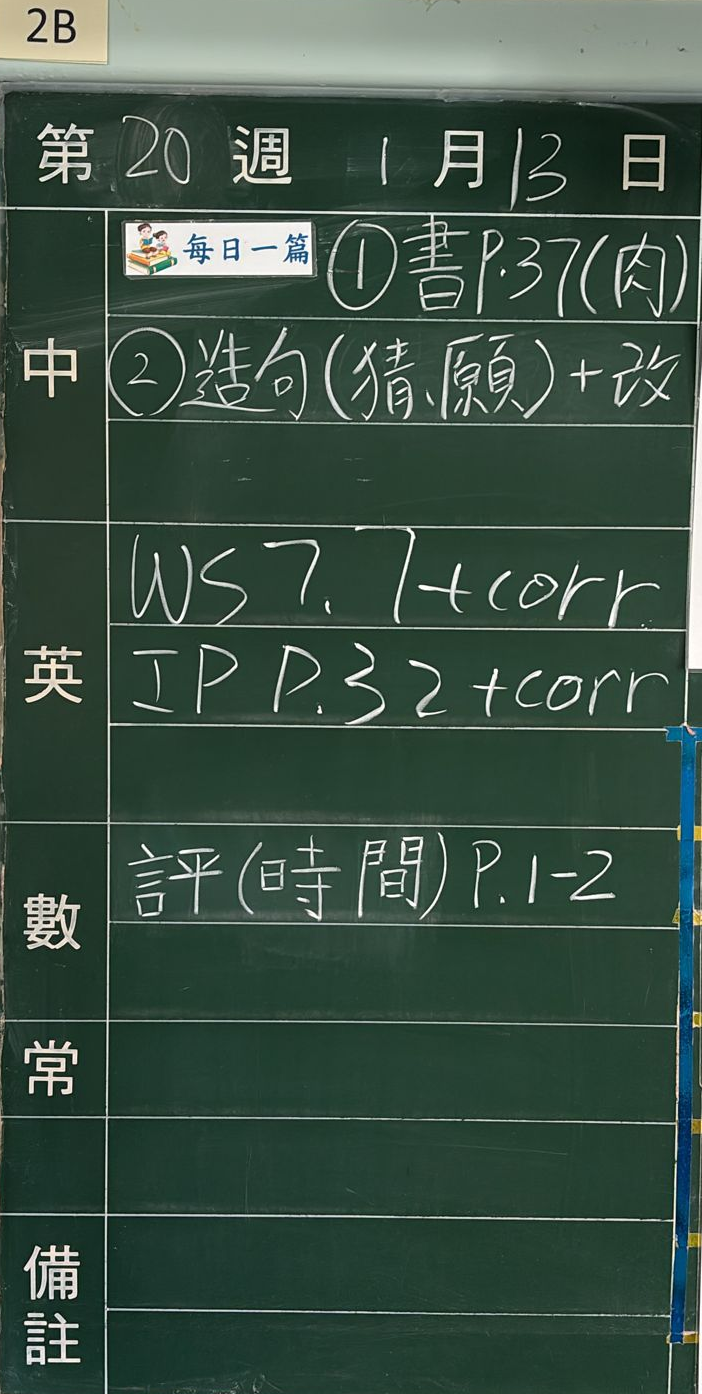 2B
第 20 週 1 月 13 日
中
每日一篇 ①書P.37(肉)
②造句(猜、願)+改
英
WS 7.7+corr
IP P.32+corr
數
評(時間)P.1-2
常
備註